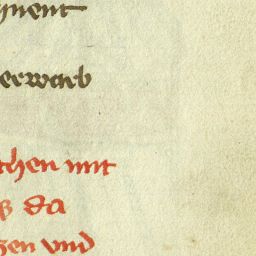 ment
erwarb
chen mit
s da
gen vnd